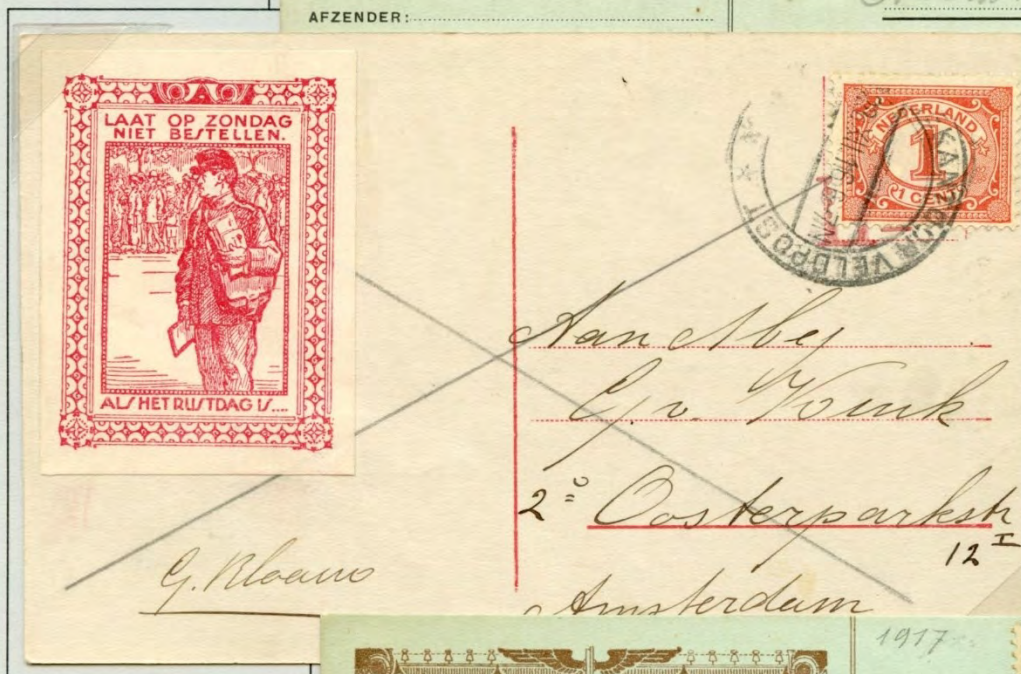 AFZENDER:
LAAT OP ZONDAG
NIET BESTELLEN.
ALS HET RUSTDAG IS....
NEDERLAND
1
1 CENT
VELDPOST
Aan Mej
G. v. Wink
2e Oosterparkstr
12 I
Amsterdam
G. Kloams
1917